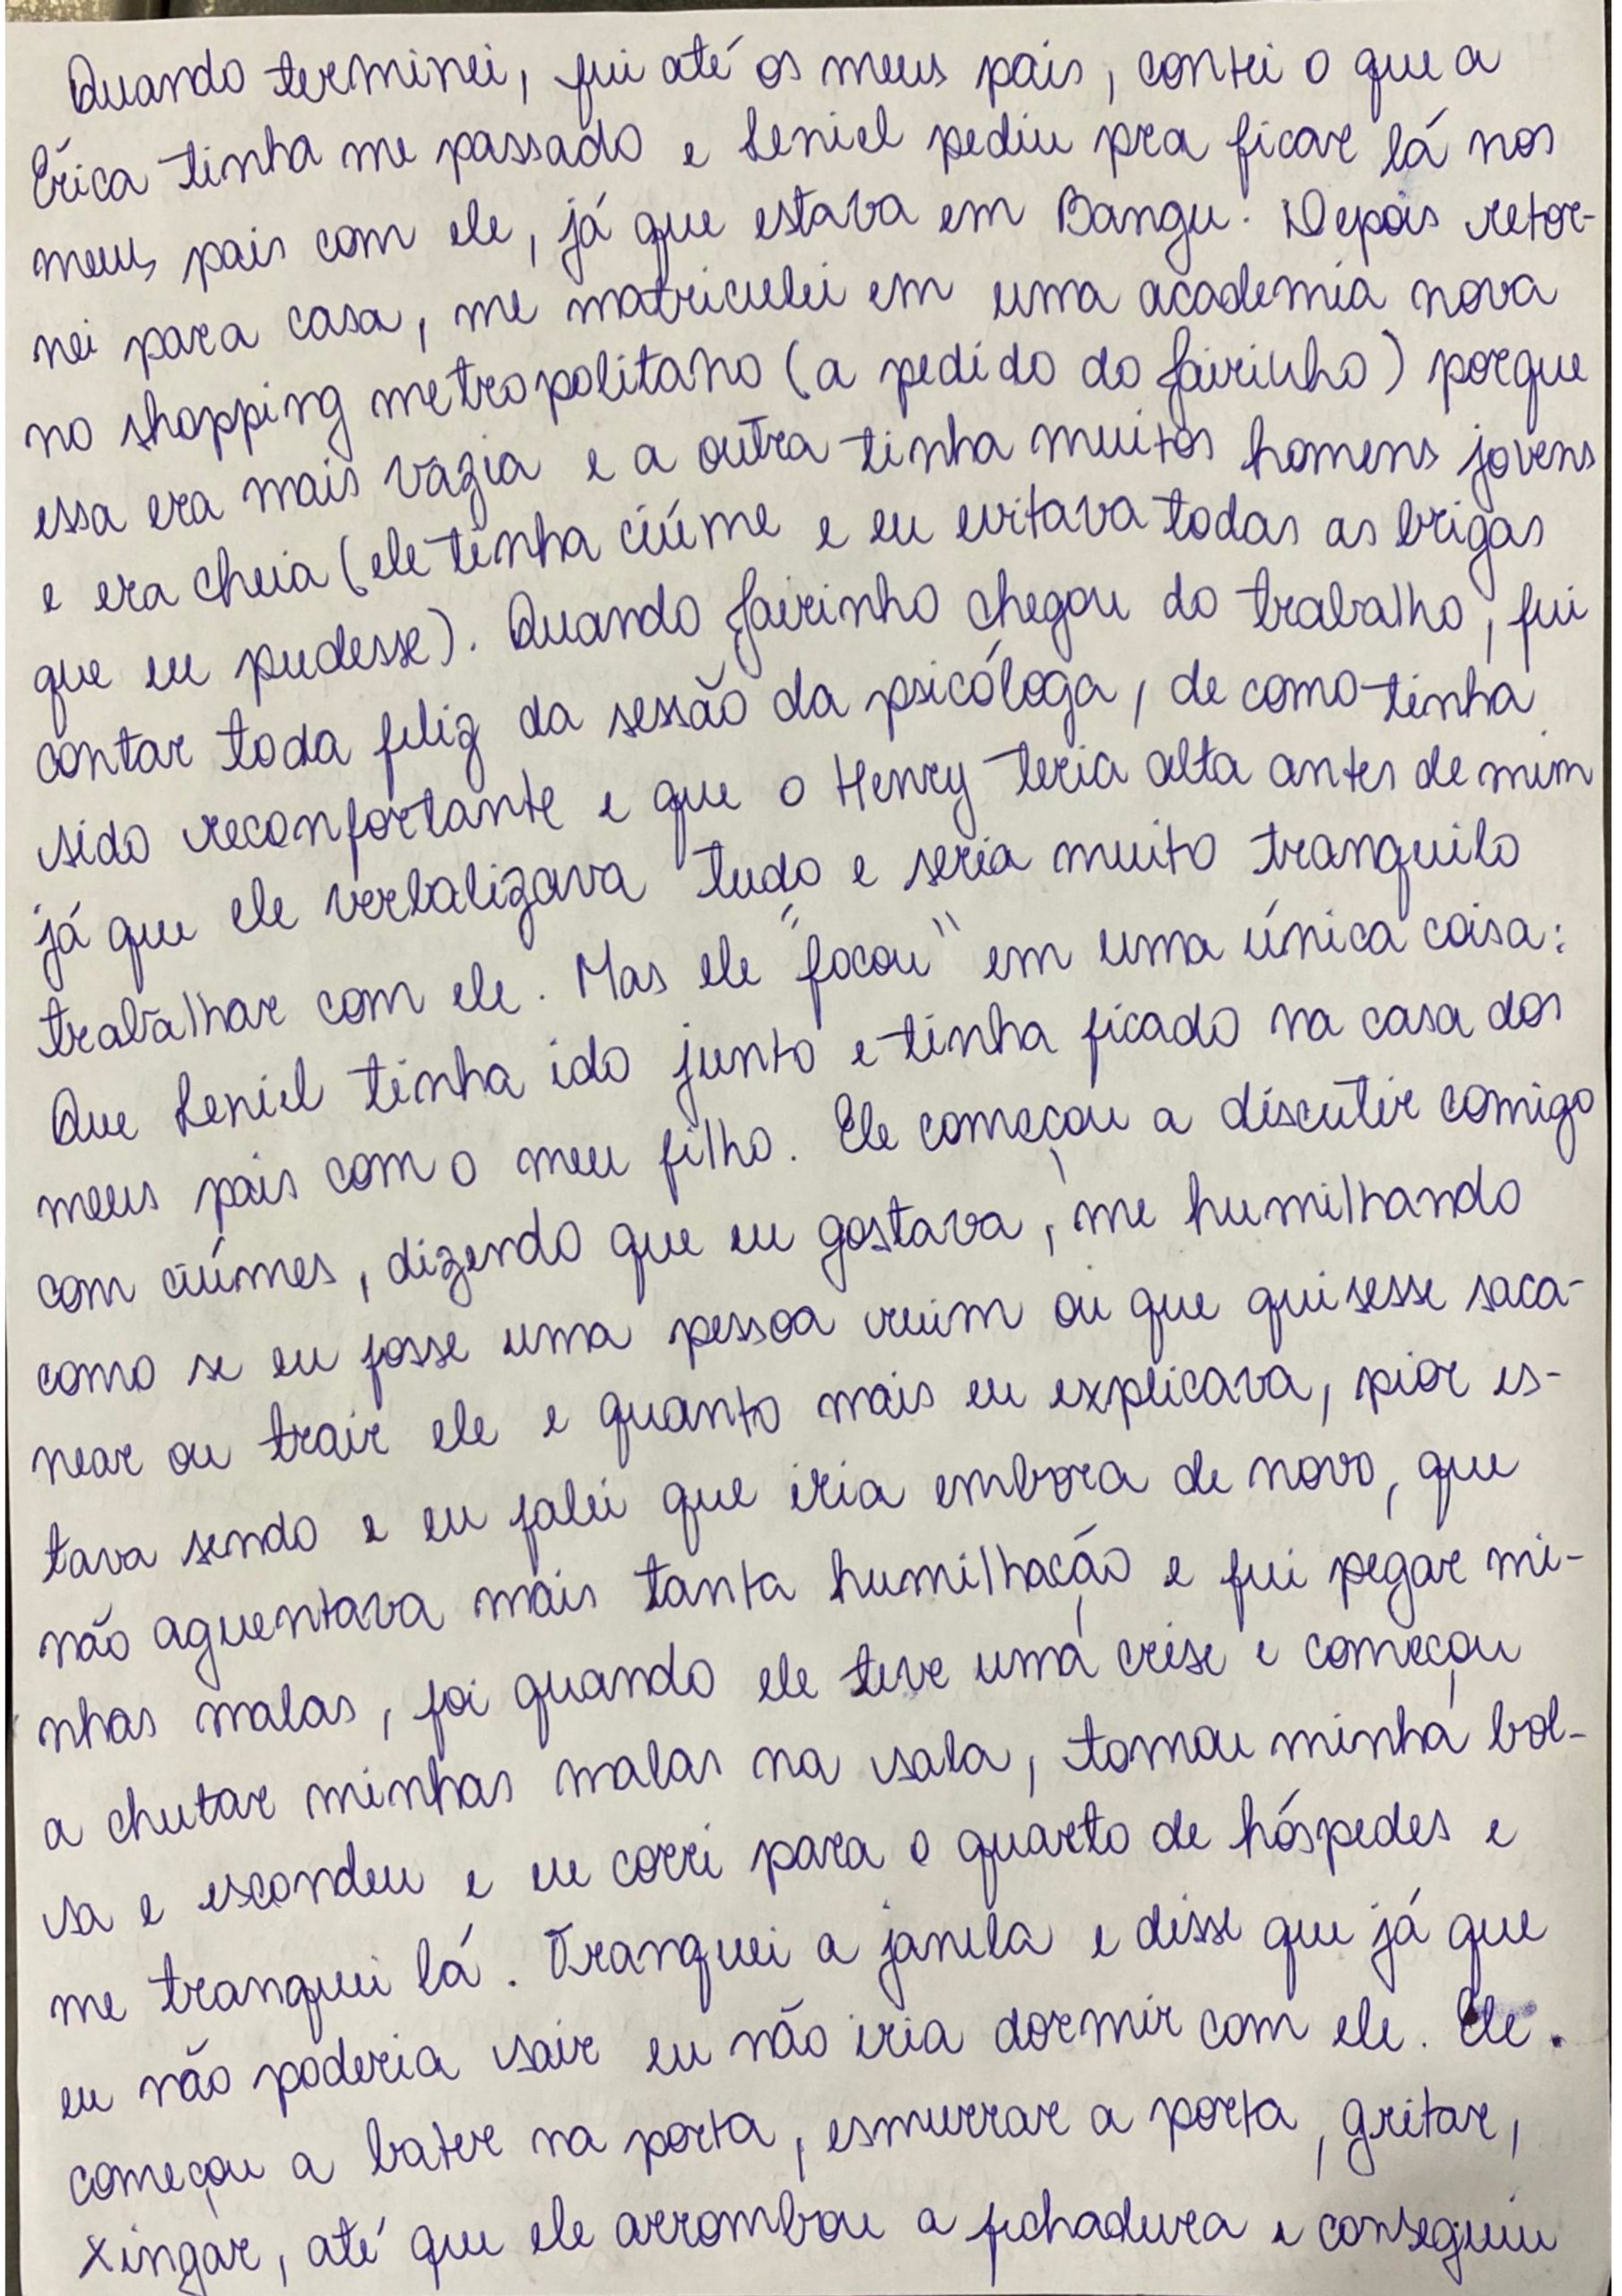 Quando terminei, fui até os meus pais, contei o que a
Érica tinha me passado e Leniel pediu pra ficar lá nos
meus pais com ele, já que estava em Bangu. Depois retor-
nei para casa, me matriculei em uma academia nova
no shopping metropolitano (a pedido do Jairinho) porque
essa era mais vazia e a outra tinha muitos homens jovens
e era cheia (ele tinha ciúme e eu evitava todas as brigas
que eu pudesse). Quando Jairinho chegou do trabalho, fui
contar toda feliz da sessão da psicóloga, de como tinha
sido reconfortante e que o Henry teria alta antes de mim
já que ele verbalizava tudo e seria muito tranquilo
trabalhar com ele. Mas ele "focou" em uma única coisa:
Que Leniel tinha ido junto e tinha ficado na casa dos
meus pais com o meu filho. Ele começou a discutir comigo
com ciúmes, dizendo que eu gostava, me humilhando
como se eu fosse uma pessoa ruim ou que quisesse saca-
near ou trair ele e quanto mais eu explicava, pior es-
tava sendo e eu falei que iria embora de novo, que
não aguentava mais tanta humilhação e fui pegar mi-
nhas malas, foi quando ele teve uma crise e começou
a chutar minhas malas na sala, tomou minha bol-
sa e escondeu e eu corri para o quarto de hóspedes e
me tranquei lá. Tranquei a janela e disse que já que
eu não poderia sair eu não iria dormir com ele. Ele.
começou a bater na porta, esmurrar a porta, gritar,
xingar, até que ele arrombou a fechadura e conseguiu